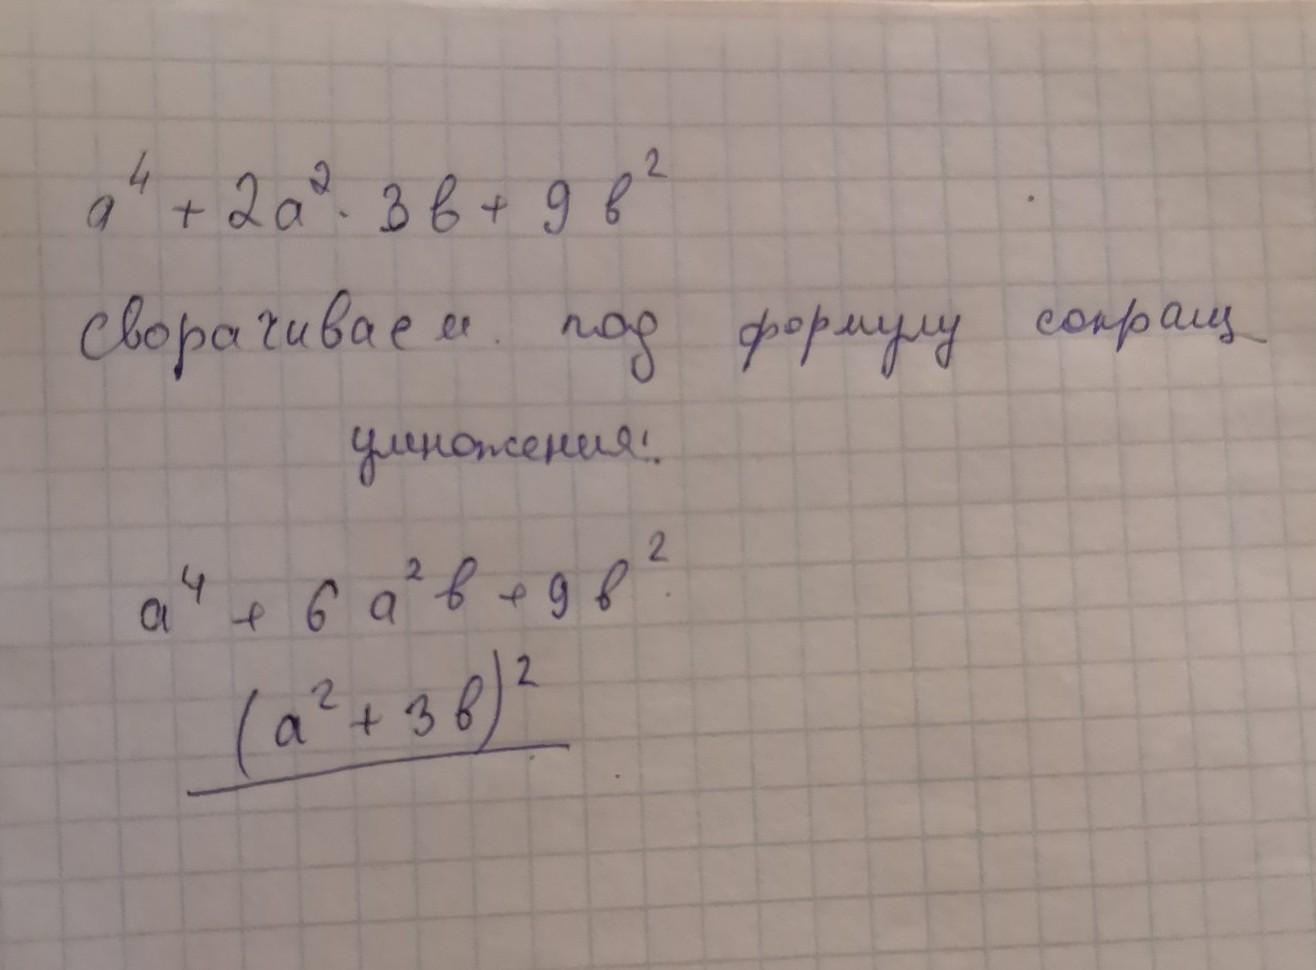 a⁴ + 2a² · 3в + 9в²
Сворачиваем под формулу сокращ
умножения:
a⁴ + 6a²в + 9в²
(a² + 3в)²